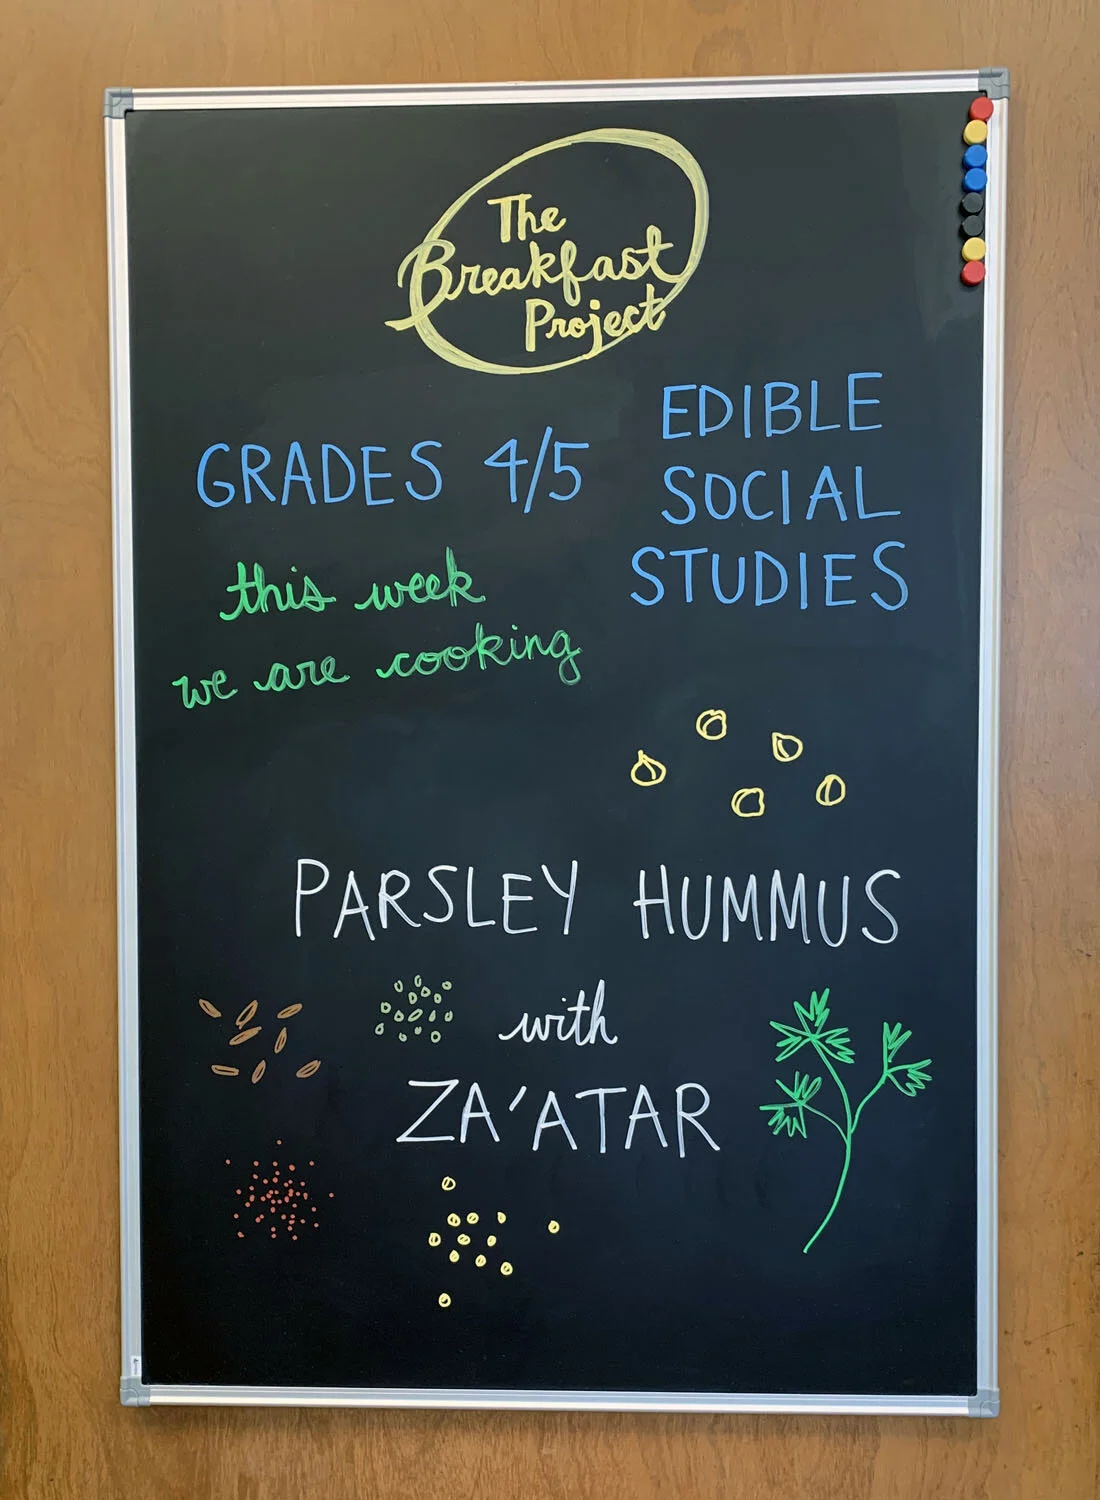 The
Breakfast
Project
GRADES 4/5
EDIBLE
SOCIAL
STUDIES
this week
we are cooking
PARSLEY HUMMUS
with
ZA'ATAR